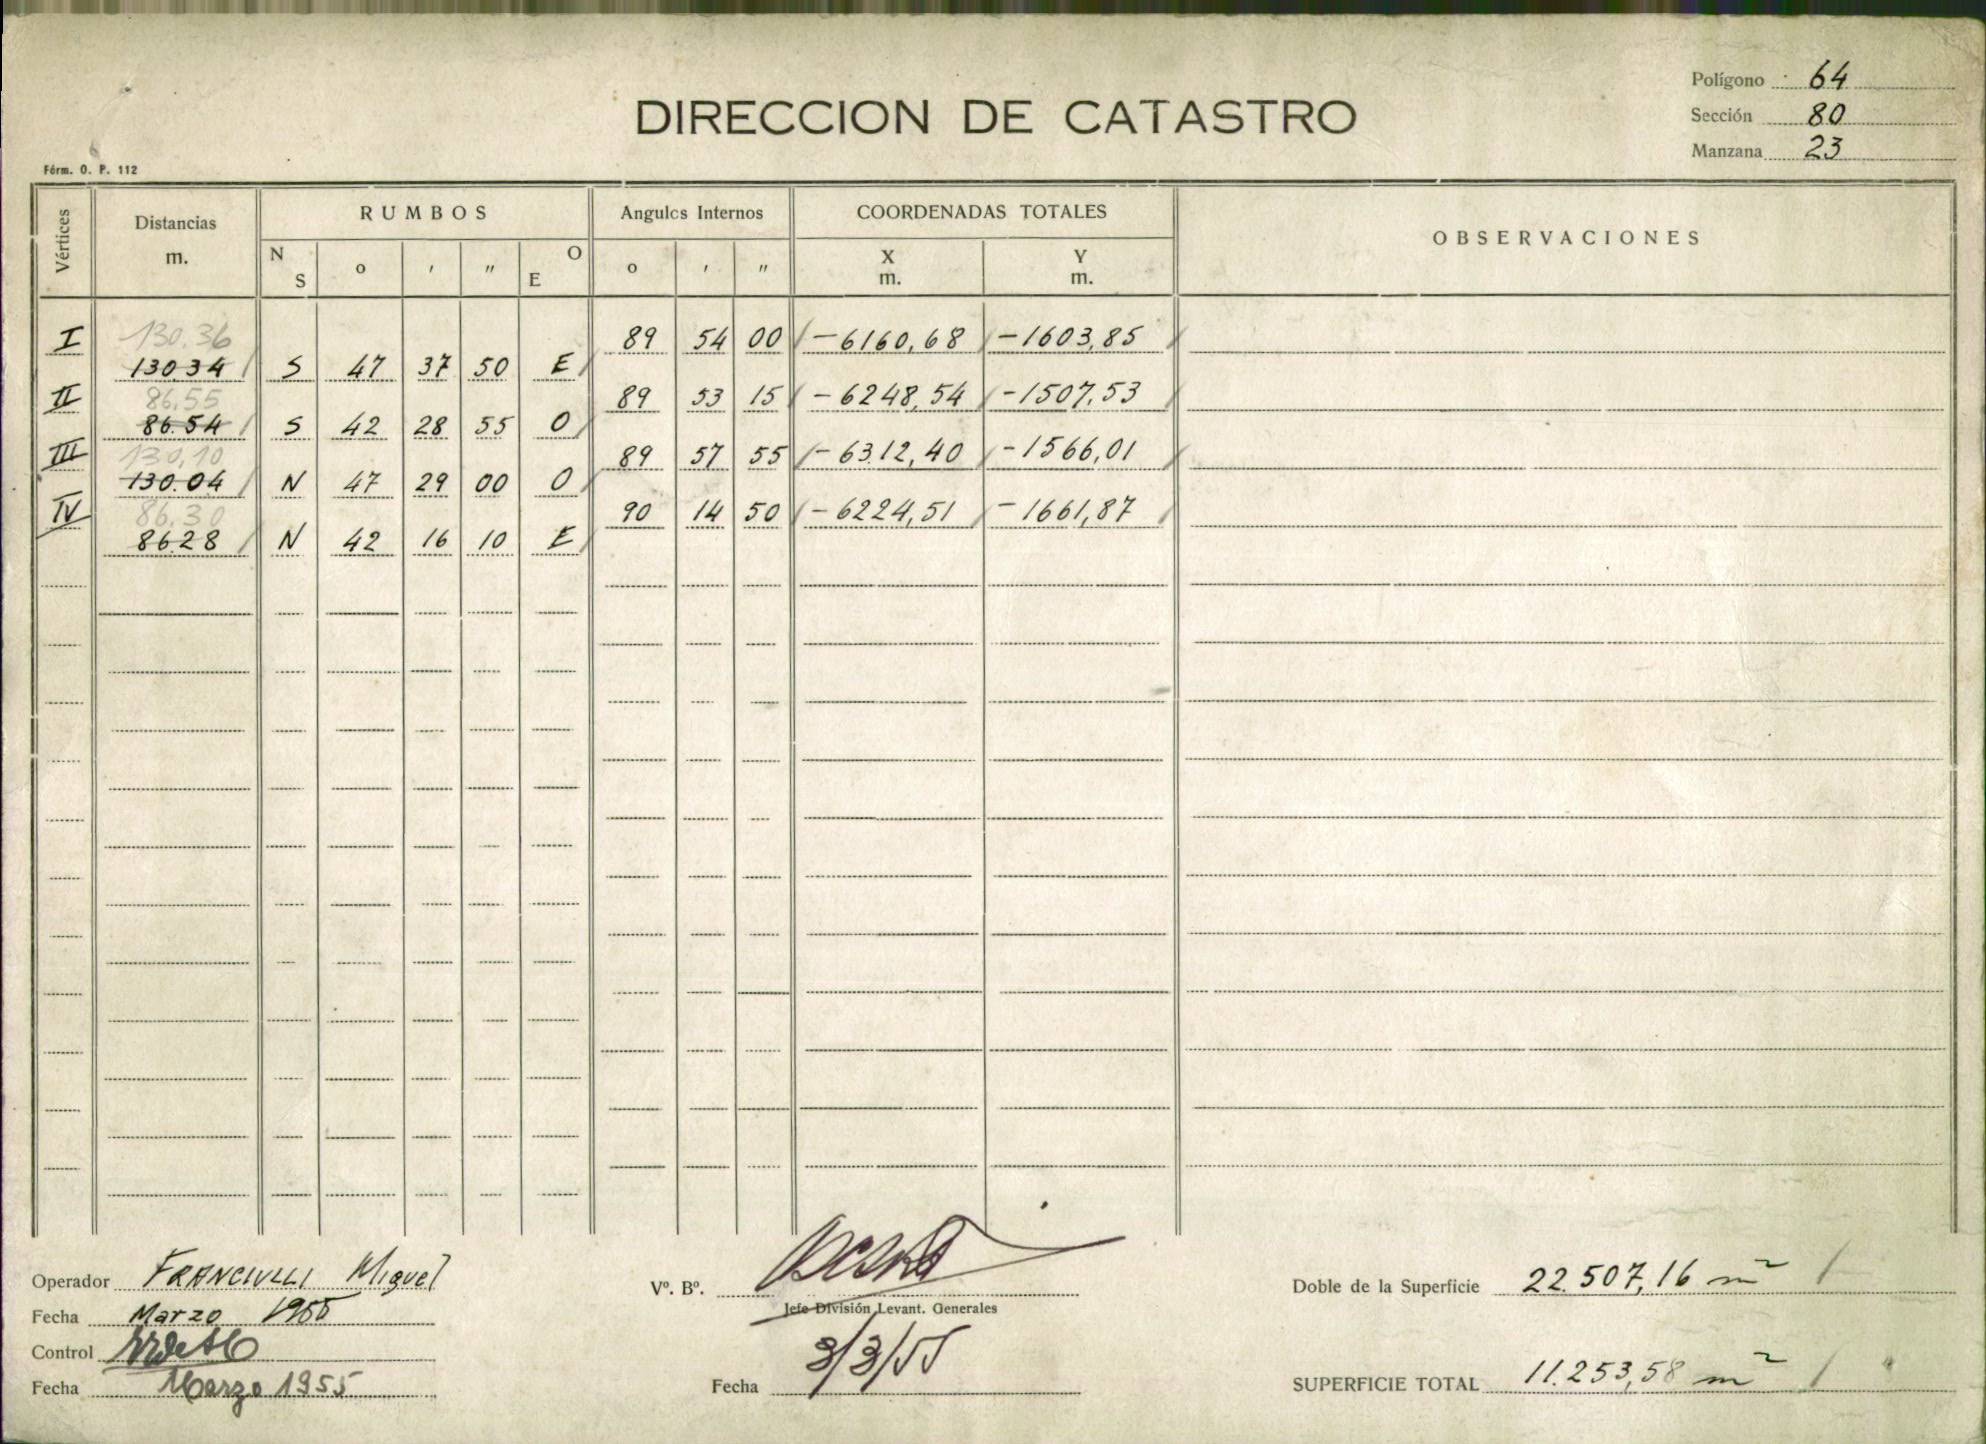 Polígono 64
DIRECCION DE CATASTRO
Sección 80
Manzana 23
Fórm. O. P. 112
Vértices Distancias m. RUMBOS Angulos Internos COORDENADAS TOTALES OBSERVACIONES
N S o ′ ″ O E o ′ ″ X m. Y m.
I 130.36 89 54 00 -6160,68 -1603,85
130.34 S 47 37 50 E
II 86.55 89 53 15 -6248,54 -1507,53
86.54 S 42 28 55 O
III 130,10 89 57 55 -6312,40 -1566,01
130.04 N 47 29 00 O
IV 86.30 90 14 50 -6224,51 -1661,87
86.28 N 42 16 10 E
Operador FRANCIULLI Miguel
Vº. Bº.
Doble de la Superficie 22.507,16 m²
Jefe División Levant. Generales
Fecha Marzo 1955
Control
Fecha Marzo 1955
Fecha 3/3/55
SUPERFICIE TOTAL 11.253,58 m²